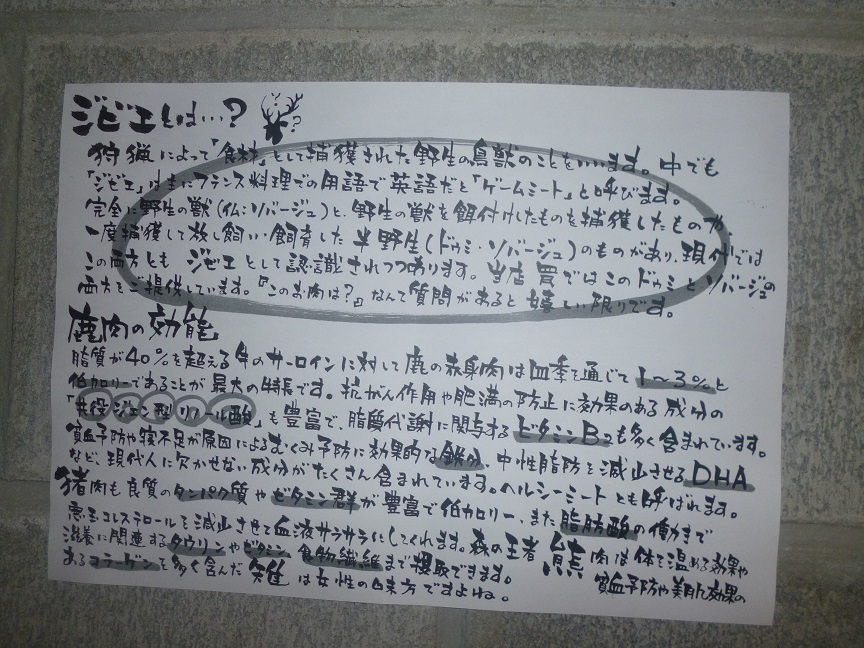 ジビエとは…?
?
狩猟によって「食材」として捕獲された野生の鳥獣のことをいいます。中でも
「ジビエ」は主にフランス料理での用語で英語だと「ゲームミート」と呼びます。
完全に野生の獣(仏:ソバージュ)と、野生の獣を餌付けしたものを捕獲したものや、
一度捕獲して放し飼い・飼育した半野生(ドゥミ・ソバージュ)のものがあり、現代では
この両方とも ジビエ として認識されつつあります。当店 罠ではこのドゥミとソバージュの
両方をご提供しています。『このお肉は?』なんて質問があると嬉しい限りです。
鹿肉の効能
脂質が40%を超える牛のサーロインに対して鹿の赤身肉は四季を通じて1~3%と
低カロリーであることが最大の特長です。抗がん作用や肥満の防止に効果のある成分の
「共役ジェン型リノール酸」も豊富で、脂質代謝に関与するビタミンB2も多く含まれています。
貧血予防や寝不足が原因によるむくみ予防に効果的な鉄分、中性脂肪を減少させるDHA
など、現代人に欠かせない成分がたくさん含まれています。ヘルシーミートとも呼ばれます。
猪肉も良質のタンパク質やビタミン群が豊富で低カロリー、また脂肪酸の働きで
悪玉コレステロールを減少させて血液サラサラにしてくれます。森の王者 熊肉は体を温める効果や
滋養に関連するタウリンやビタミン、食物繊維まで摂取できます。
貧血予防や美肌効果の
あるコラーゲンを多く含んだ 雉 は女性の味方ですよね。